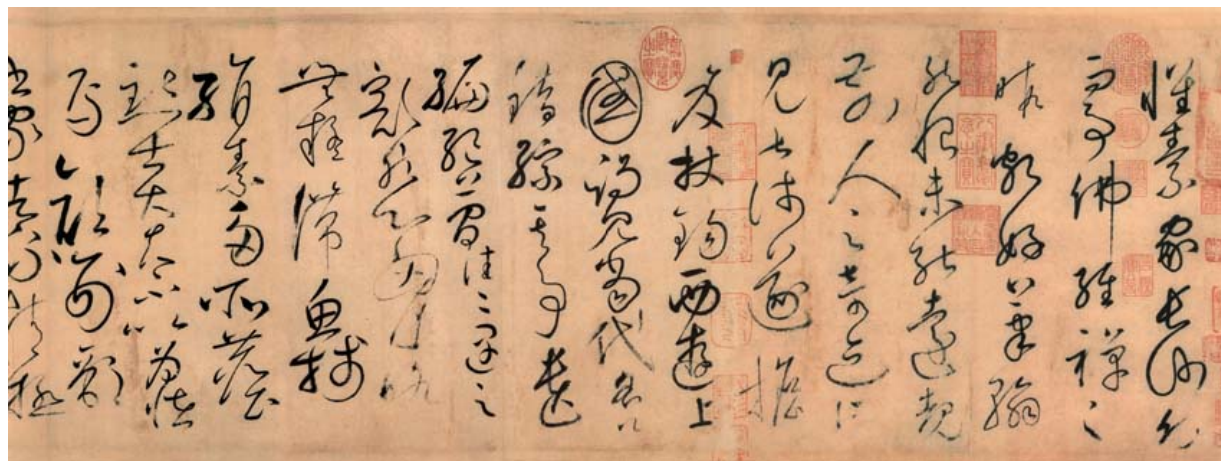 懷素家長沙幼
而事佛經禪之
暇頗好筆翰
然恨未能遠覩
前人之奇迹所
見甚淺遂擔
笈杖錫西遊上
國謁見當代名公
錯綜其事遺
編絕簡往〻遇之
豁然心胸略
無疑滯魚牋
絹素多所塵點
士大夫不以為怪
焉顏刑部
書家者流精極